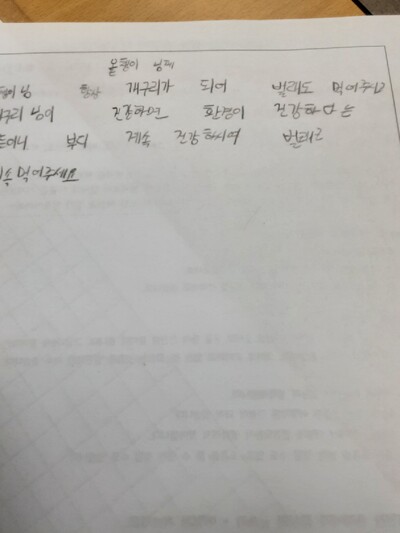 올챙이 님께
님 개구리가 되어 벌레도 먹어주고
구리 님이 건강하면 환경이 건강하다는
부디 계속 건강하시여 벌레를
속 먹어주세요